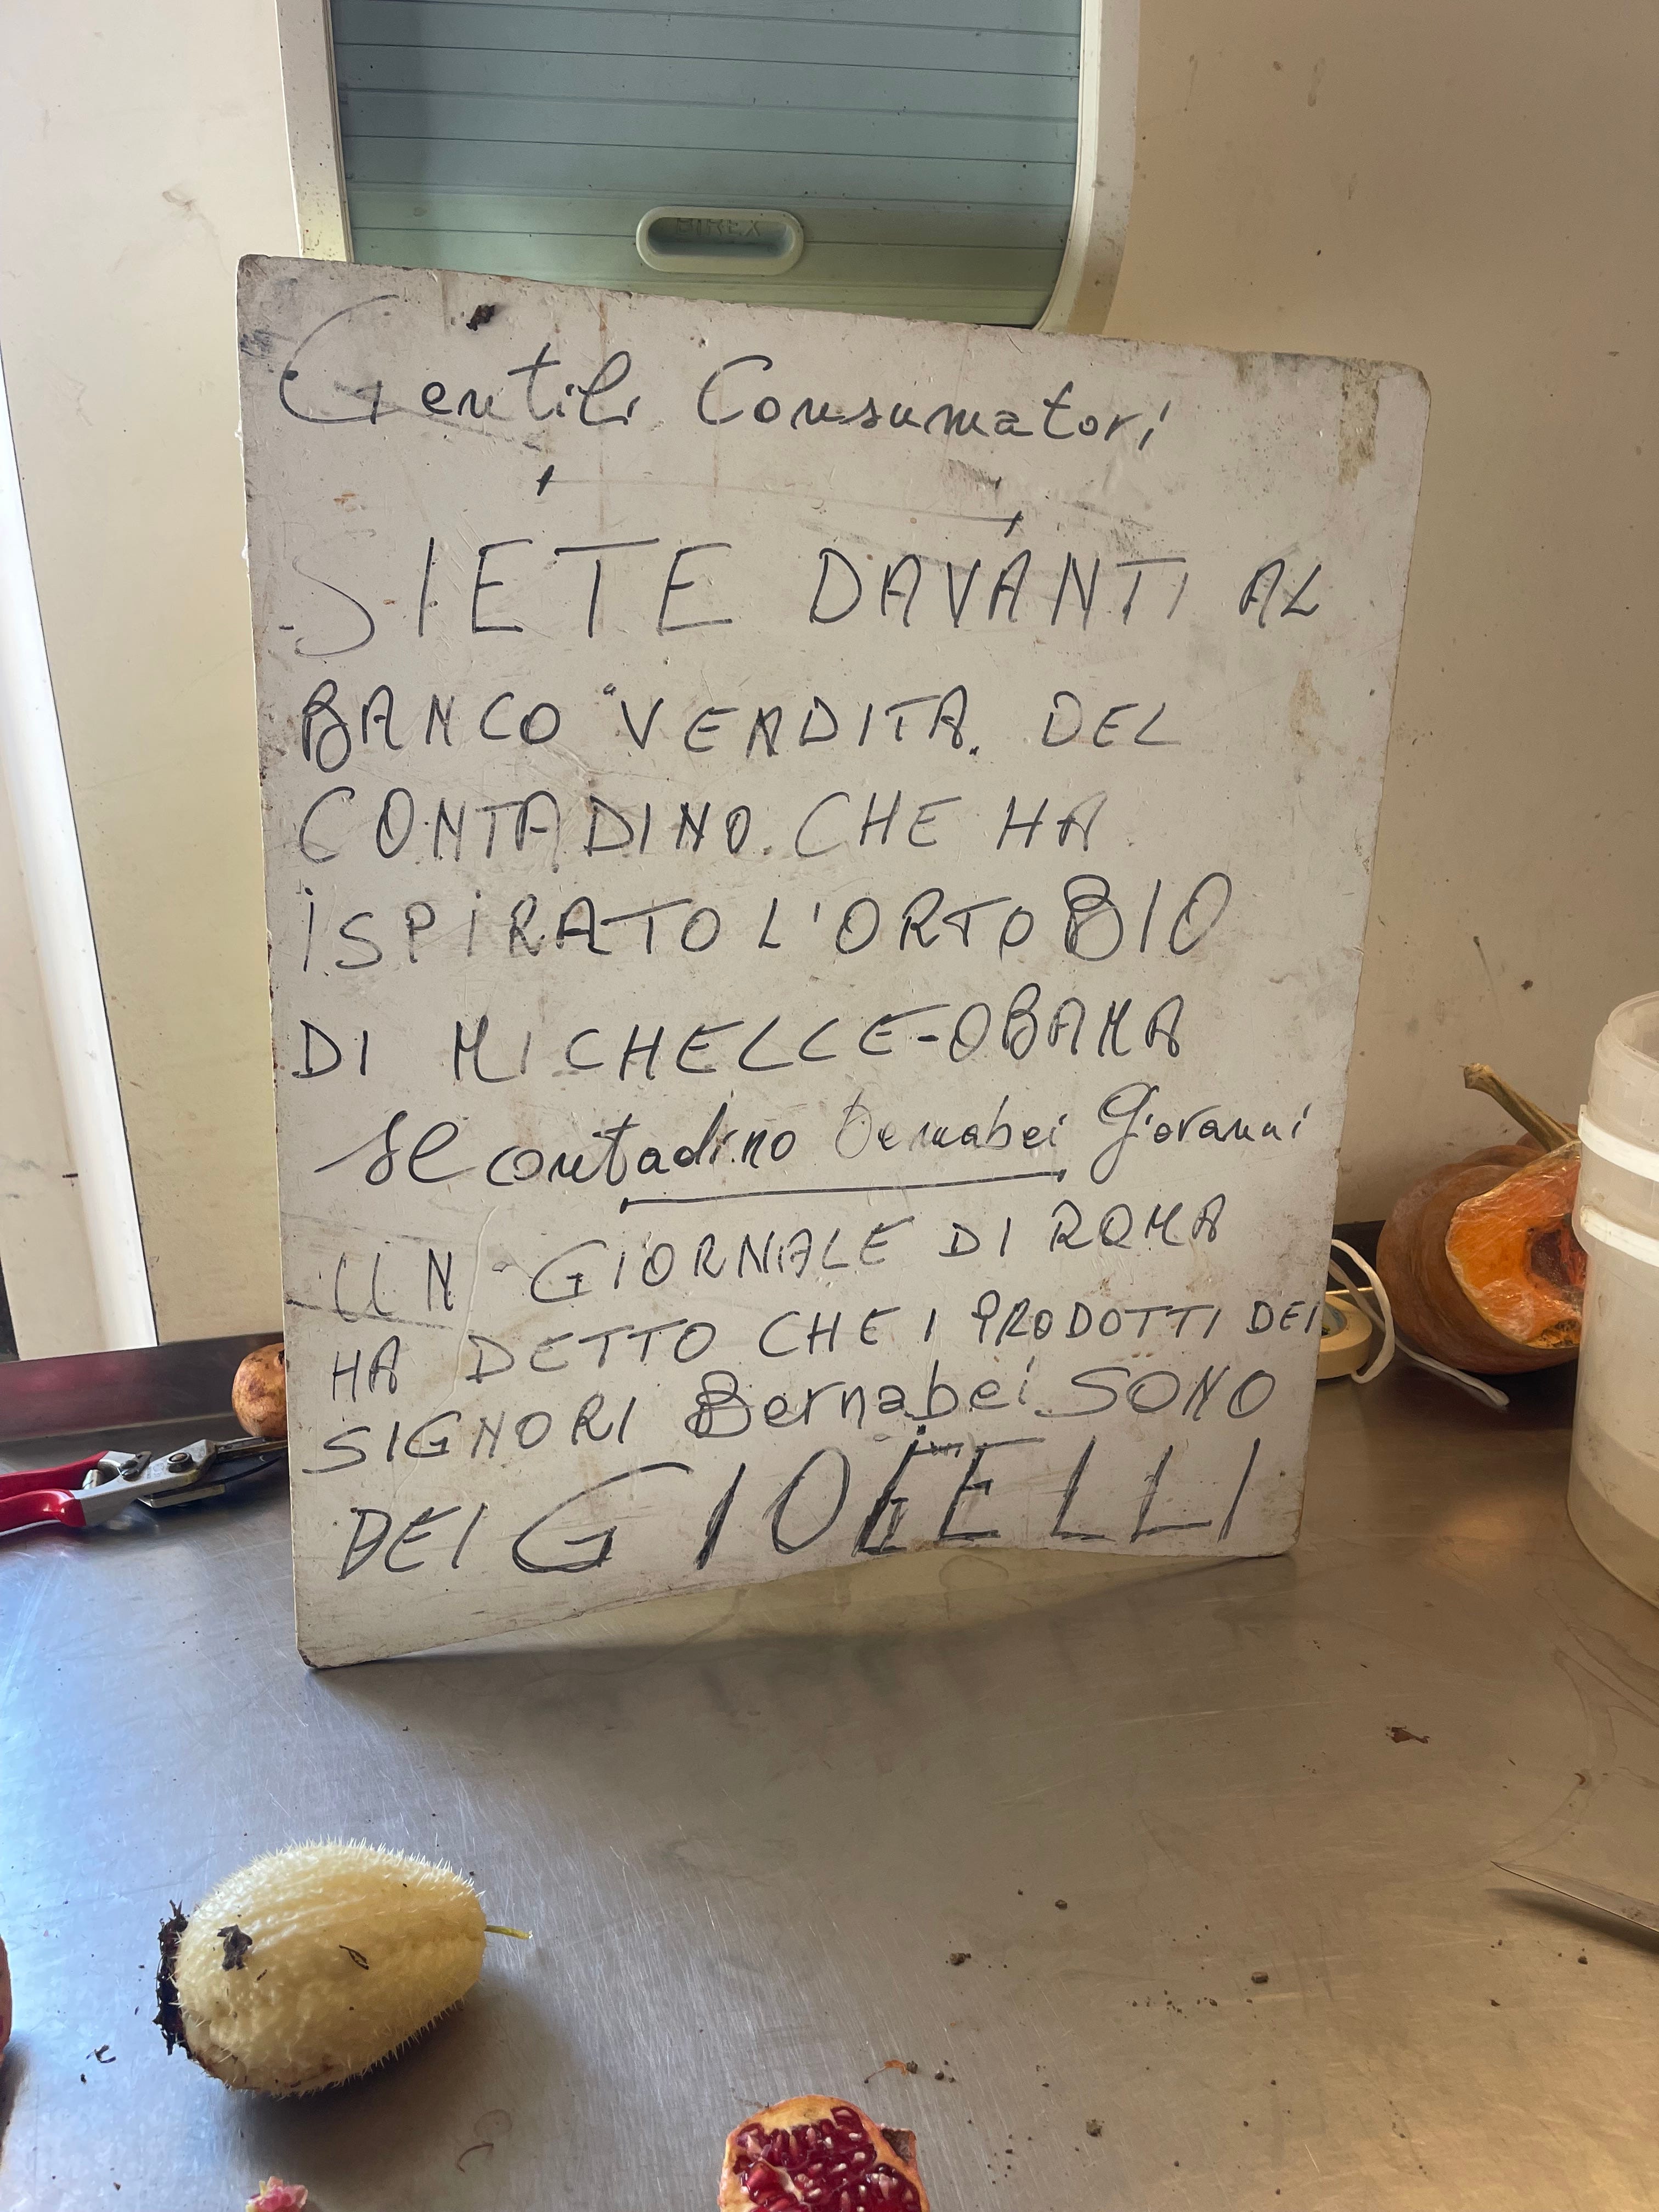 BIREX
Gentili Consumatori
SIETE DAVANTI AL
BANCO VENDITA. DEL
CONTADINO. CHE HA
ISPIRATO L'ORTO BIO
DI MICHELLE-OBAMA
Il contadino Bernabei Giovanni
UN GIORNALE DI ROMA
HA DETTO CHE I PRODOTTI DEI
SIGNORI Bernabei SONO
DEI GIOIELLI